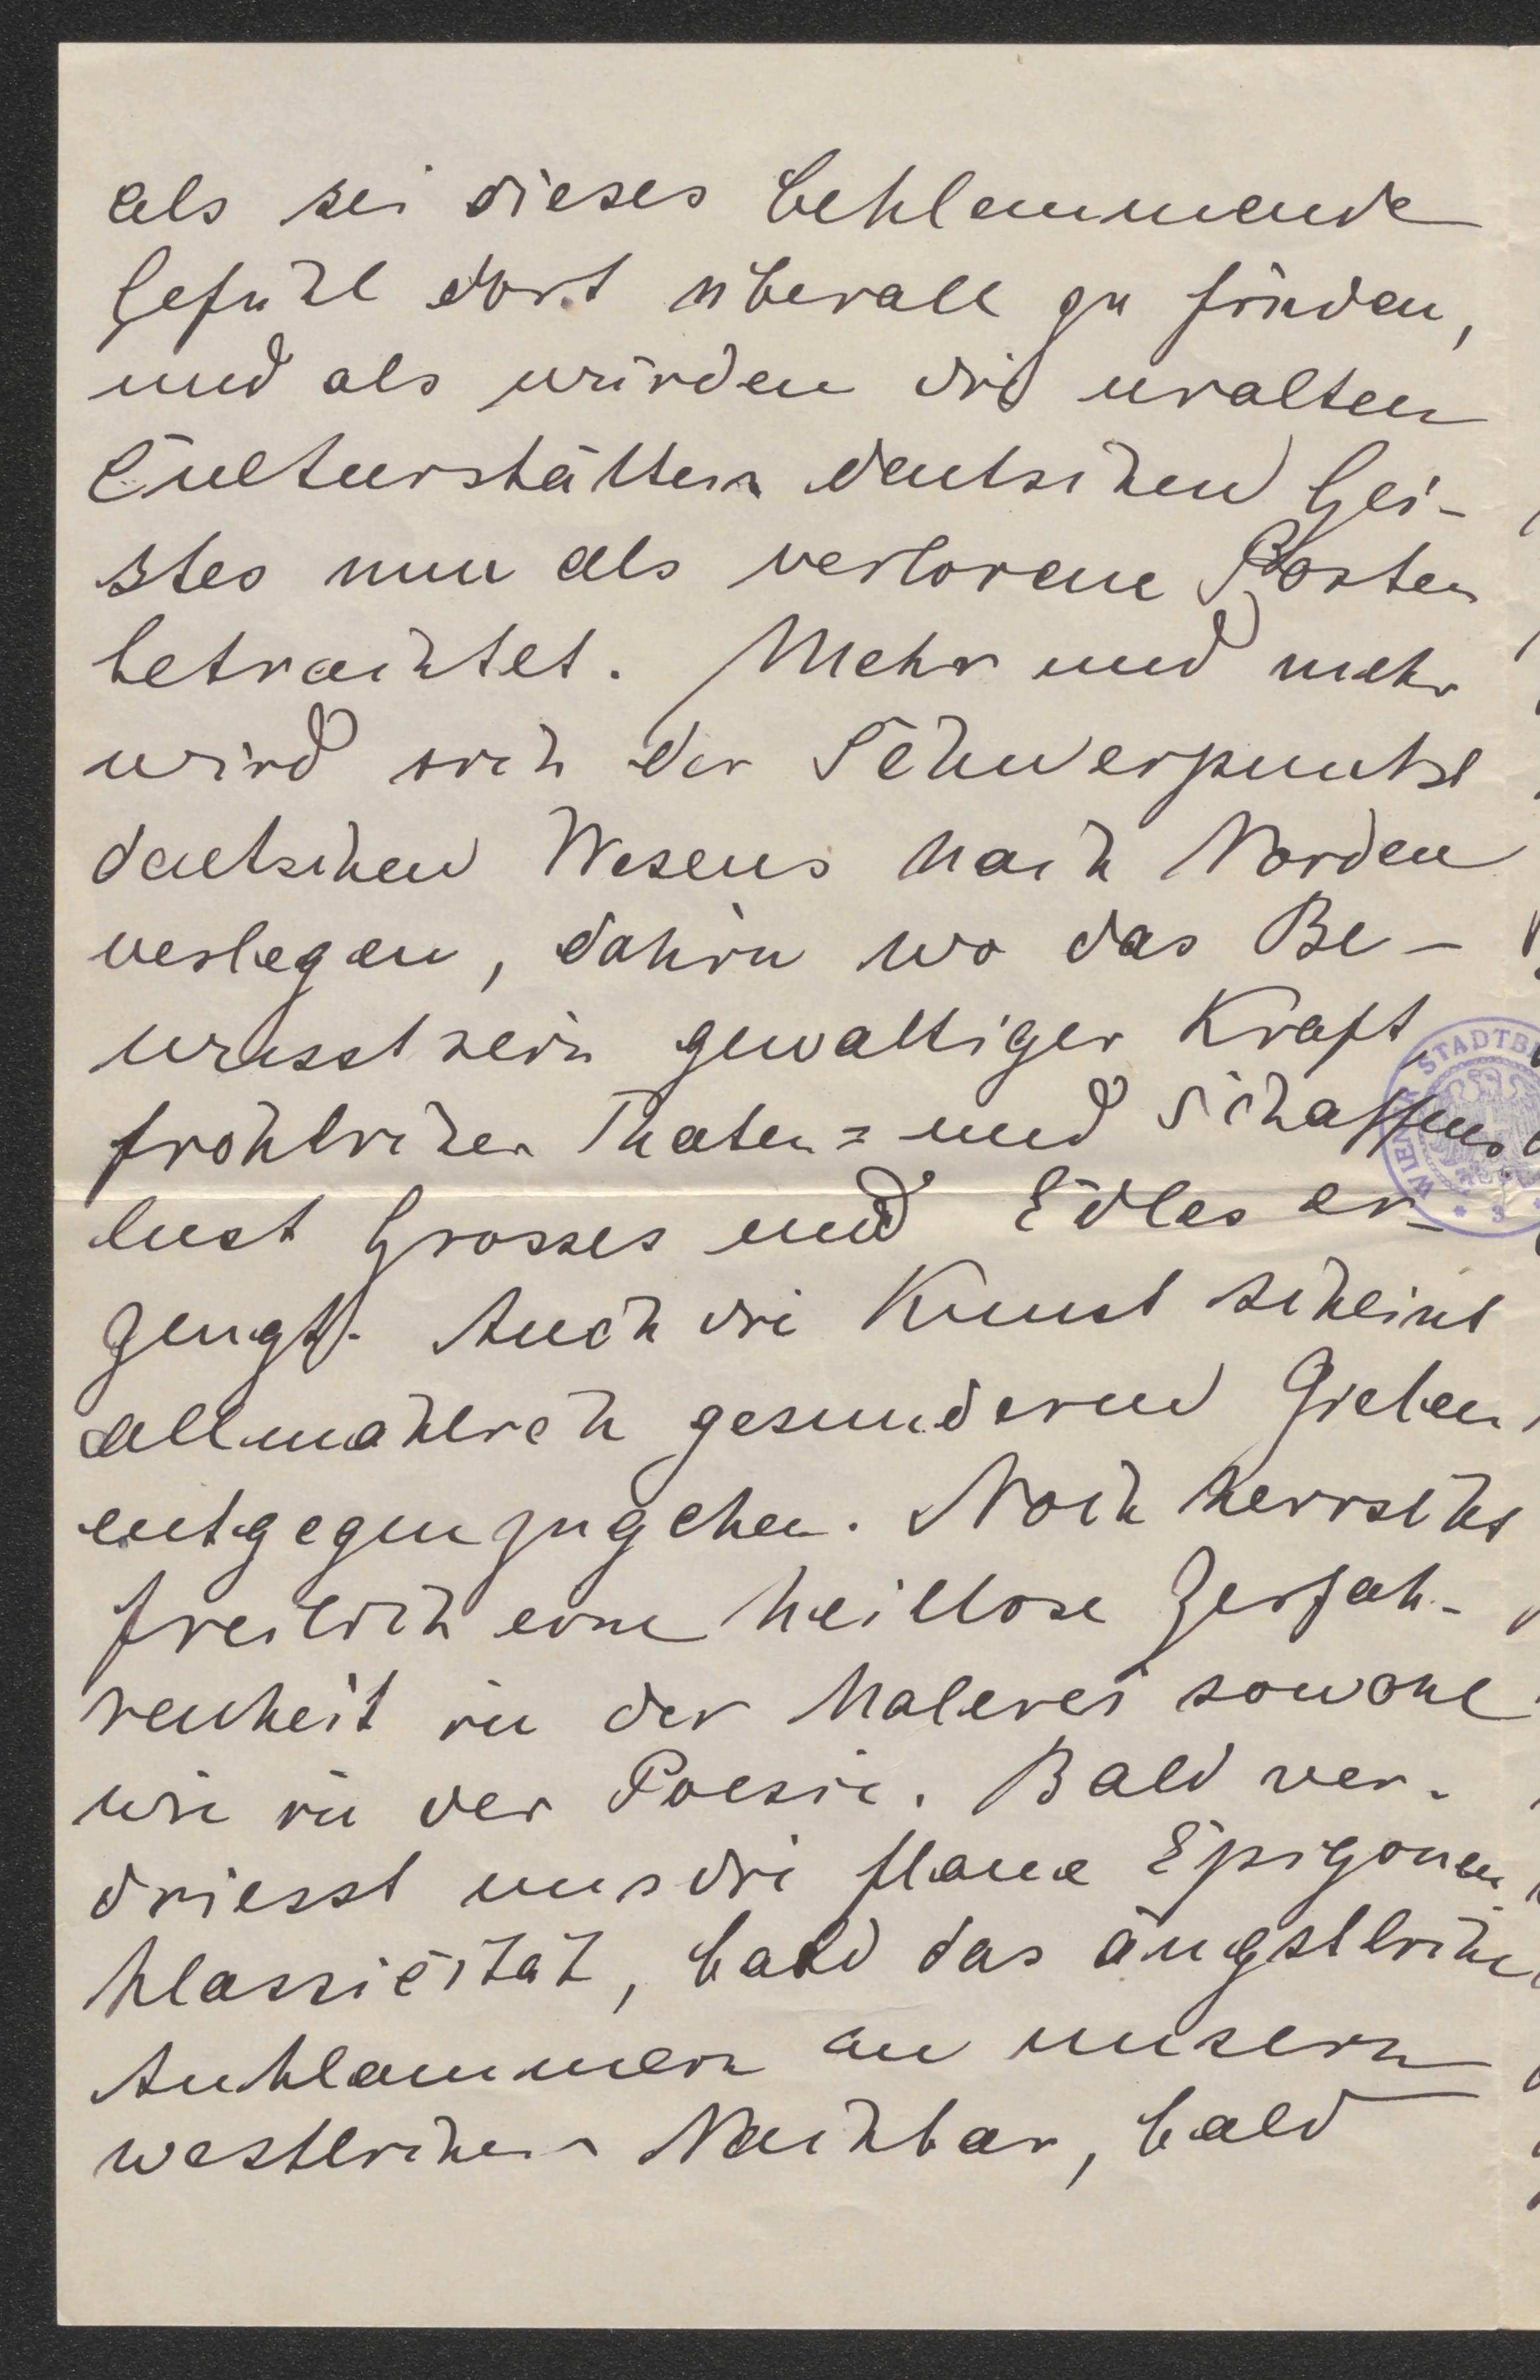 als sei dieses beklemmende
Gefühl dort überall zu finden,
und als würden die uralten
Culturstätten deutschen Gei-
stes nun als verlorene Posten
betrachtet. Mehr und mehr
wird sich der Schwerpunkt
deutschen Wesens nach Norden
verlegen, dahin wo das Be-
wusstsein gewaltiger Kraft
fröhlicher Thaten= und Schaffens
lust Grosses und Edles er-
zeugt. Auch die Kunst scheint
allmählich gesunderen Zielen
entgegenzugehen. Noch herrscht
freilich eine heillose Zerfah-
renheit in der Malerei sowohl
wie in der Poesie. Bald ver-
driesst uns die flaue Epigonen
klassicität, bald das ängstliche
Anklammern an unsern
westlichen Nachbar, bald
WIENER STADTB